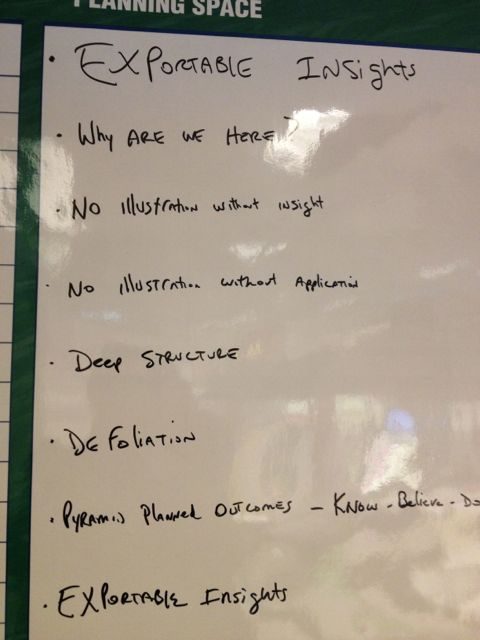 PLANNING SPACE
• EXPORTABLE INSights
• Why ARE WE HERE?
• No illustration without insight
• No illustration without Application
• Deep STRUCTURE
• DEFOLIATION
• PYRAMID Planned OUTCOMES – KNOW - Believe - Do
• EXPORTABLE Insights